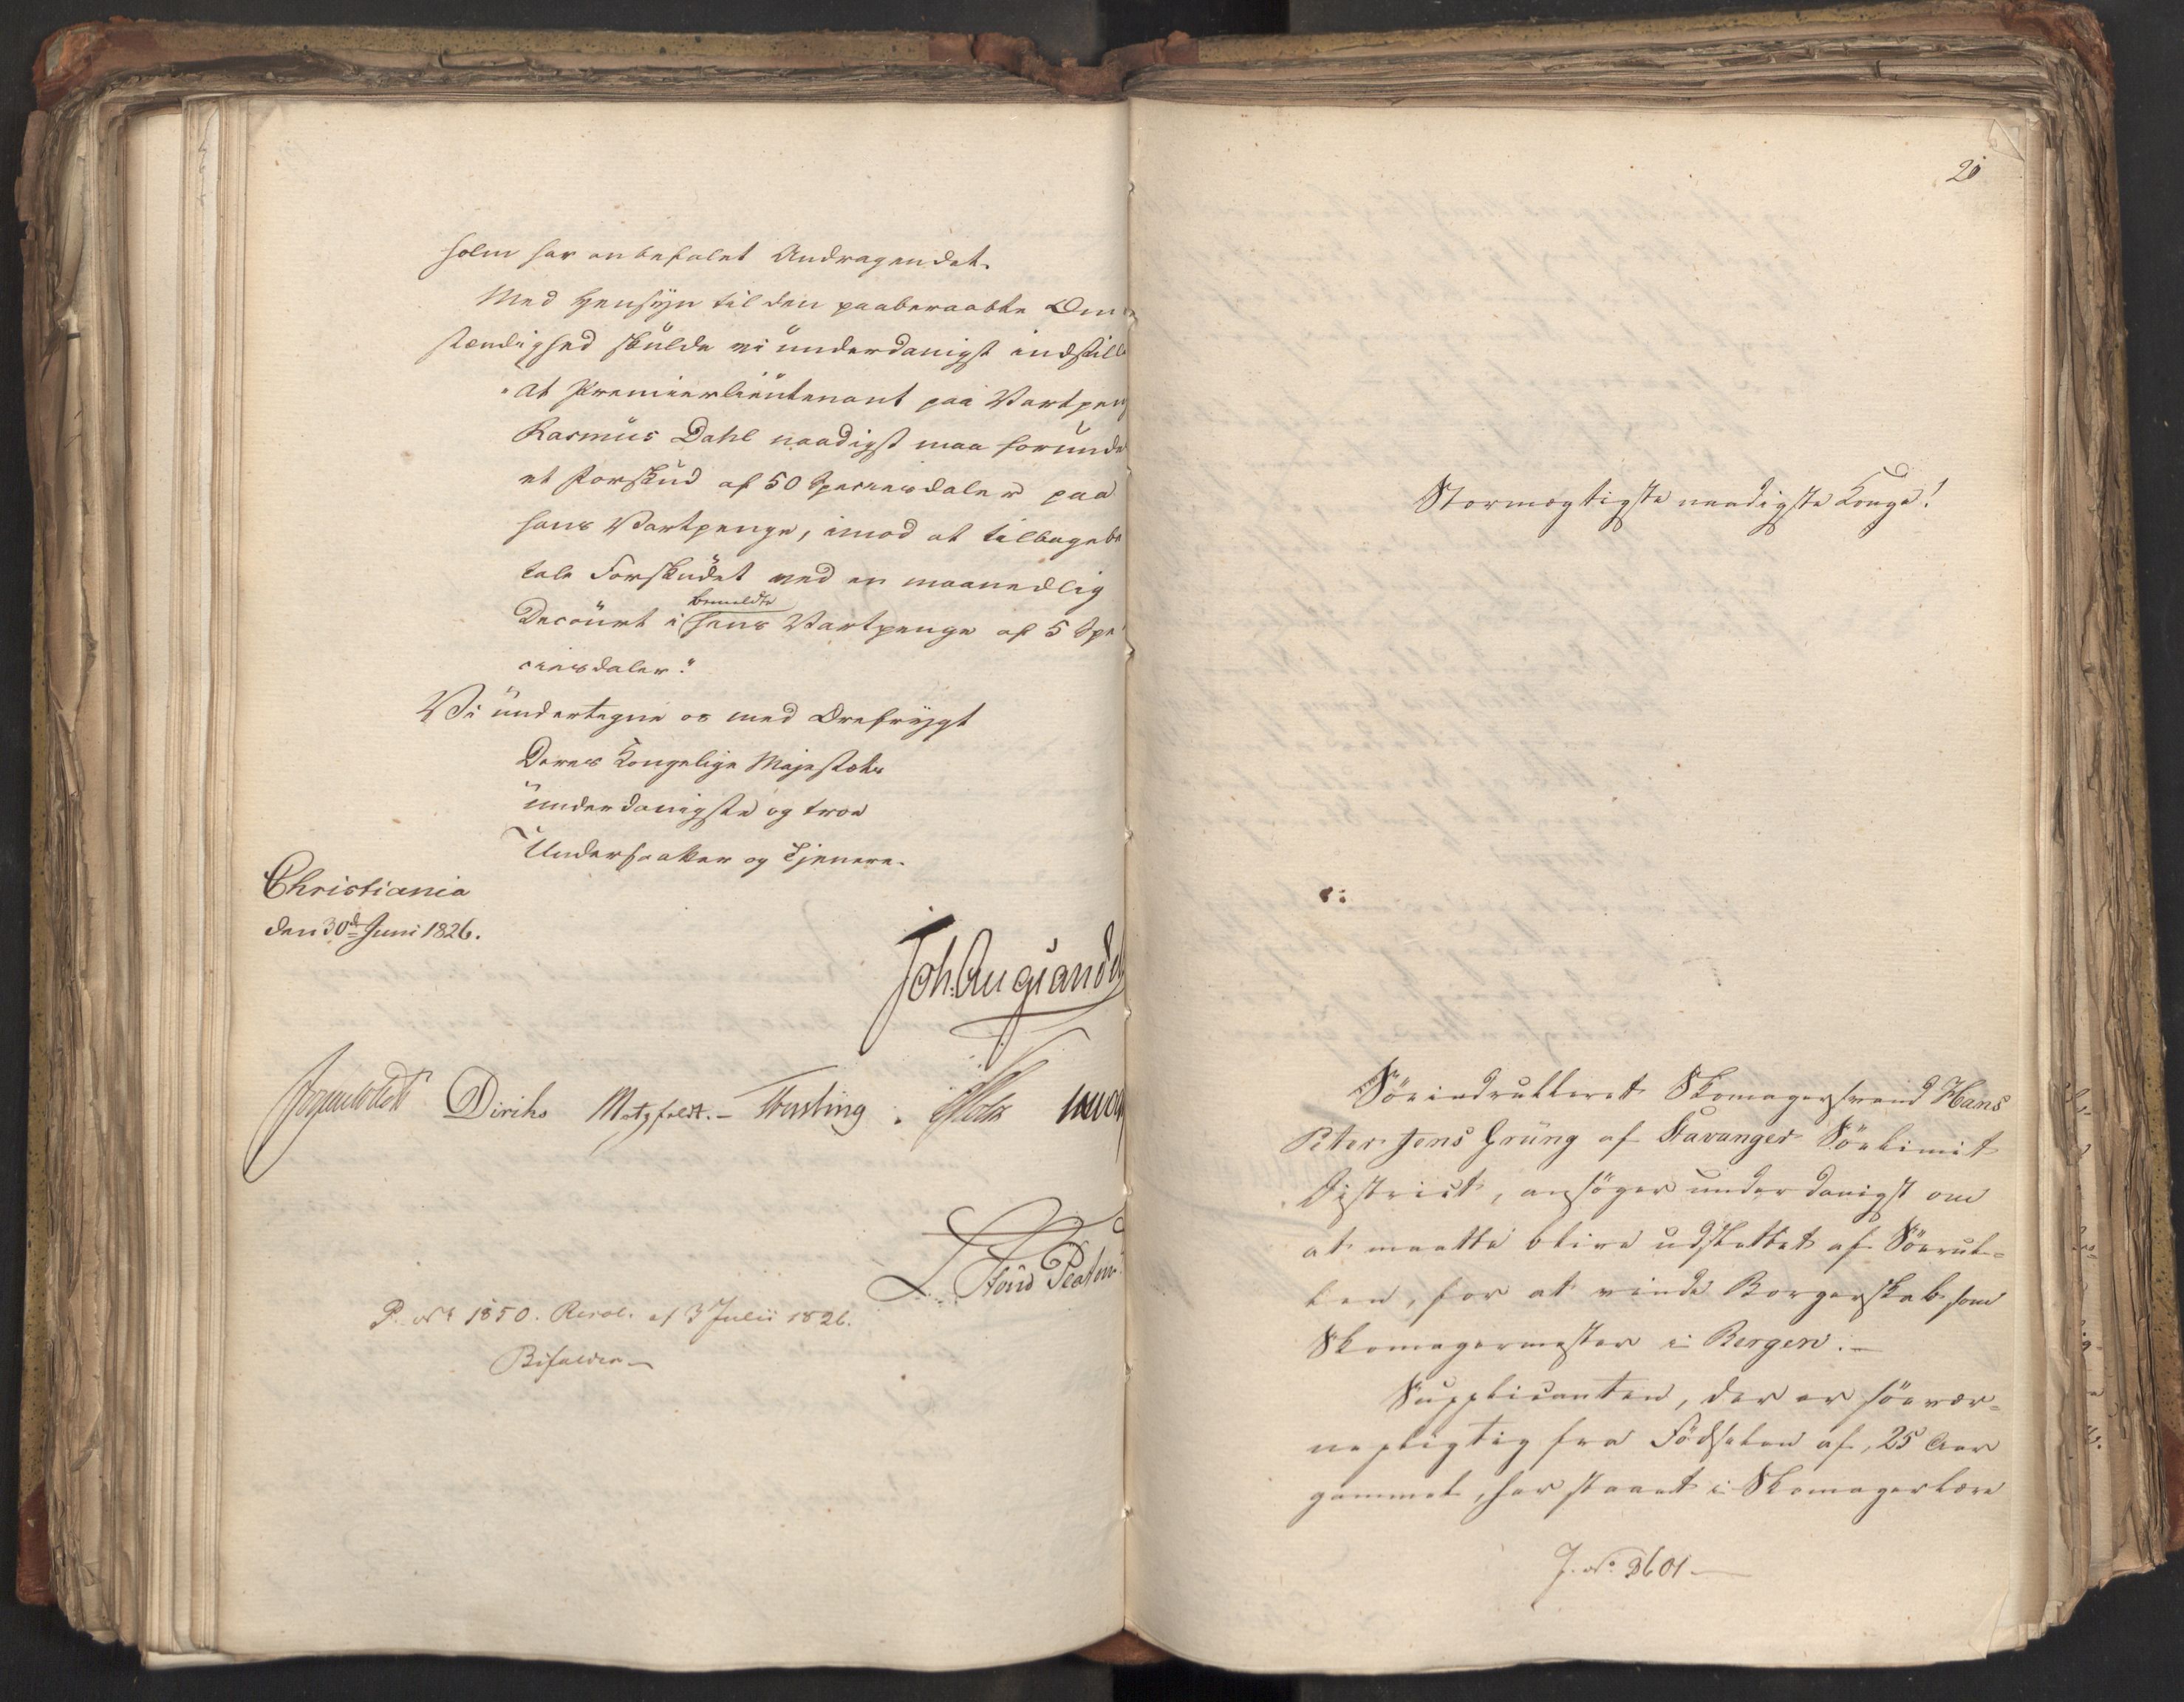 holm har anbefalet Andragendet.
Med Hensyn til den paaberaabte Om
stændighed skulde vi underdanigst indstille
"At Premierlieutenant paa Vartpeng
Rasmus Dahl naadigst maa forunde
et Forskud af 50 Speciesdaler paa
hans Vartpenge, imod at tilbagebe
tale Forskudet ved en maanedlig
bemeldte
Decourt i hans Vartpenge af 5 Spe
ciesdaler."
Vi undertegne os med Ærefrygt
Deres Kongelige Majestæts
underdanigste og troe
Undersaatter og Tjenere.
Christiania
den 30d Juni 1826.
Joh. Aug. Sande
Diriks Motzfeldt. Fasting
P. No 1850. Resol. af 3 Julii 1826.
Bifaldes
20
Stormægtigste naadigste Konge!
Söeindrulleret Skomagersvend Hans
Peter Jens Grüng af Stavanger Söelimit
District, ansöger underdanigst om
at maatte blive udslettet af Söerul-
len, for at vinde Borgerskab som
Skomagermester i Bergen.
Supplicanten, der er söevær-
nepligtig fra Födselen af, 25 Aar
gammel, har staaet i Skomagerlære
J. No. 3601